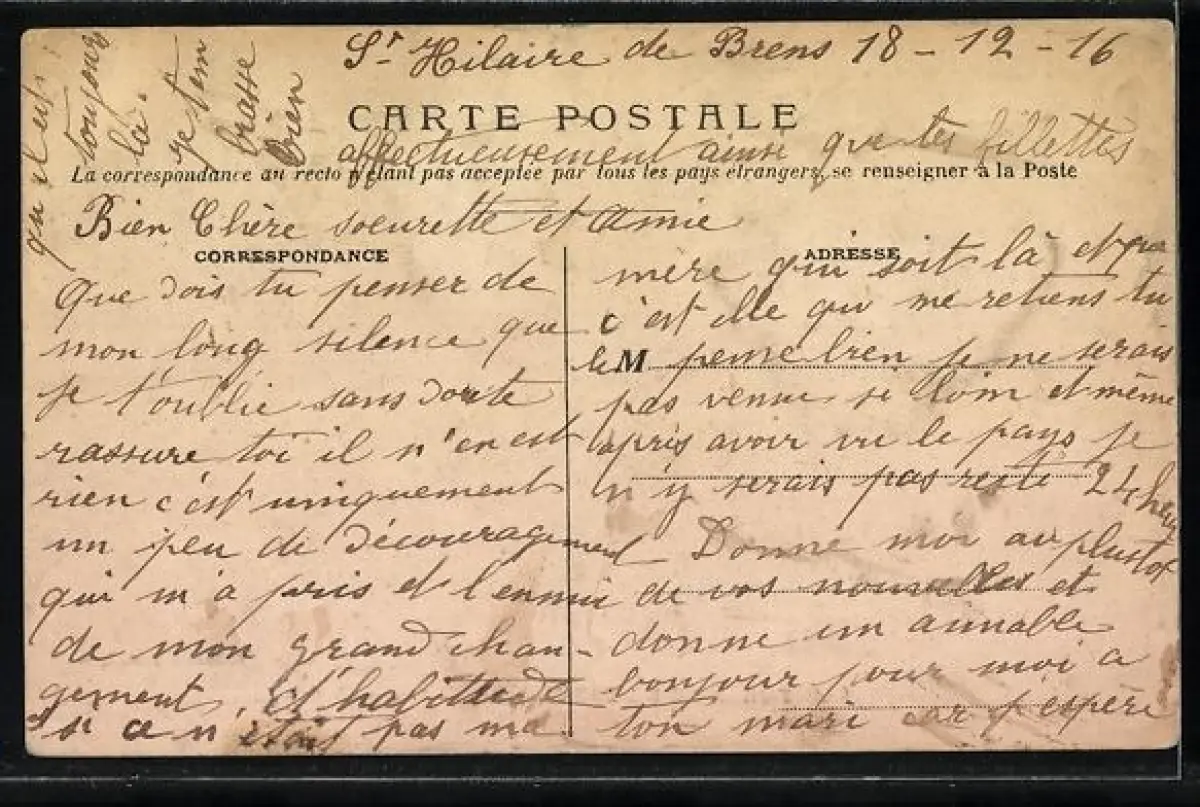 St Hilaire de Brens 18-12-16
CARTE POSTALE
La correspondance au recto n'étant pas acceptée par tous les pays étrangers, se renseigner à la Poste
Bien Chère soeurette et amie
CORRESPONDANCE
Que dois tu penser de
mon long silence que
je t'oublie sans doute
rassure toi il n'en est
rien c'est uniquement
un peu de découragement
qui m'a pris et l'ennui
de mon grand chan-
gement, d'habitude
si ce n'était pas ma
ADRESSE
mère qui soit là et que
c'est elle qui me retiens tu
le M pense bien je ne serais
pas venue si loin et même
après avoir vu le pays je
n'y serais pas resté 24 heu
Donne moi au plus tot
de vos nouvelles et
donne un aimable
bonjour pour moi a
ton mari car j'espère
qu'il est
toujours
là.
je t'em
brasse
bien
affectueusement ainsi que tes fillettes